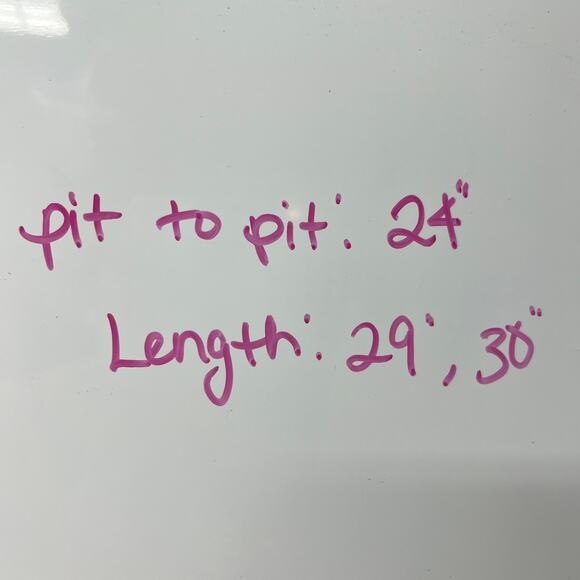 pit to pit: 24"
Length: 29", 30"